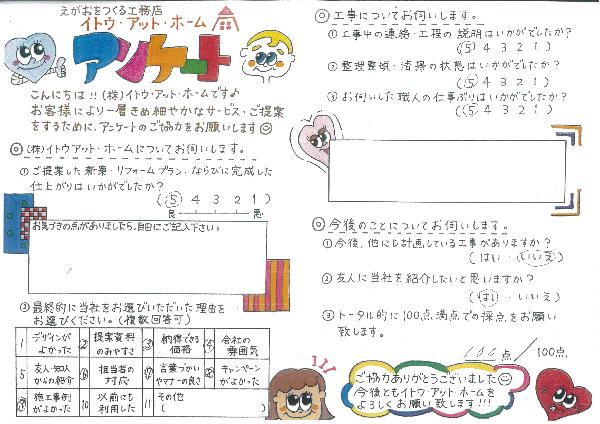 えがおをつくる工務店
イトウ・アット・ホーム
アンケート
こんにちは!! (株)イトウ・アット・ホームです♪
お客様により一層きめ細やかなサービス・ご提案
をするために、アンケートのご協力をお願いします☺
◎(株)イトウアット・ホームについてお伺いします。
①ご提案した新築・リフォームプラン・ならびに完成した
仕上がりはいかがでしたか?
(⑤ 4 3 2 1)
良 悪
お気づきの点がありましたら、自由にご記入下さい。
②最終的に当社をお選びいただいた理由を
お選びください。(複数回答可)
1 デザインがよかった
② 提案資料のみやすさ
③ 納得できる価格
④ 会社の雰囲気
5 友人・知人からの紹介
⑥ 担当者の対応
⑦ 言葉づかいやマナーの良さ
⑧ キャンペーンがよかった
⑨ 施工事例がよかった
10 以前にも利用した
11 その他
( )
◎工事についてお伺いします。
①工事中の連絡・工程の説明はいかがでしたか?
(⑤ 4 3 2 1)
②整理整頓・清掃の状態はいかがでしたか?
(⑤ 4 3 2 1)
③お伺いした職人の仕事ぶりはいかがでしたか?
(⑤ 4 3 2 1)
◎今後のことについてお伺いします。
①今後、他にも計画している工事がありますか?
(はい・いいえ)
②友人に当社を紹介したいと思いますか?
(はい・いいえ)
③トータル的に100点満点での採点をお願い
致します。
100点/100点
ご協力ありがとうございました☺
今後ともイトウ・アット・ホームを
よろしくお願い致します!!!